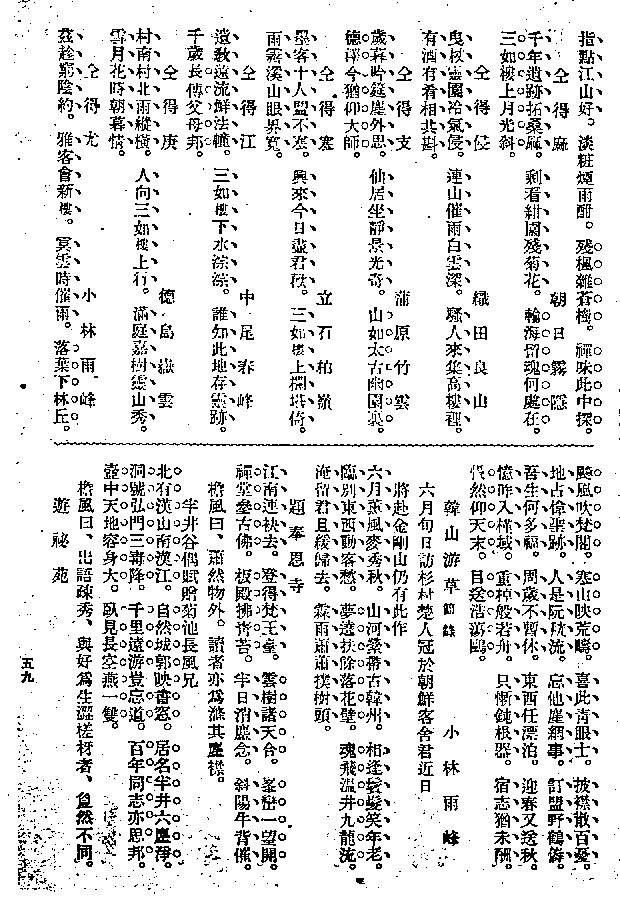 指點江山好。淡粧煙雨酣。殘楓雜蒼檜。禪味此中探。
仝得麻　朝日霧隱
千年遺跡拓桑麻。剩看紺園殘菊花。輪海留魂何處在。
三如樓上月光斜。
仝得侵　織田良山
曳杖靈園冷氣侵。連山催雨白雲深。騷人來集高樓裡。
有酒有肴相共斟。
仝得支　蒲原竹雲
歲暮吟筵塵外思。仙居坐靜景光奇。山如太古幽園裏。
德澤今猶仰大師。
仝得寒　立石柏嶺
墨客十人盟不寒。興來今日盡君歡。三如樓上欄堪倚。
雨霽溪山眼界寬。
仝得江　中尾春峰
遺教遠流鮮法幢。三如樓下水淙淙。誰知此地存靈跡。
千歲長傳父母邦。
仝得庚　德島嶽雲
村南村北雨縱橫。人向三如樓上行。滿庭嘉樹靈山秀。
雪月花時朝暮情。
仝得尤　小林雨峰
茲趁窮陰約。雅客會新樓。冥雲時催雨。落葉下林丘。
颷風吹梵閣。寒山映荒疇。喜此靑眼士。披襟散百憂。
地占偉聖跡。人是阮嵇流。忘他塵網事。訂盟野鶴儔。
吾生何多福。周歲不暫休。東西任漂泊。迎春又送秋。
憶昨入槿域。重棹般若舟。只慚鈍根器。宿志猶未酬。
悵然仰天末。目送浩蕩鷗。
韓山游草 節錄　小林雨峰
六月旬日訪杉村楚人冠於朝鮮客舍君近日
將赴金剛山仍有此作
六月薰風麥秀秋。山河縈帶古韓州。相逢鬂髮笑年老。
臨別東西動客愁。夢遶扶餘落花壁。魂飛溫井九龍流。
淹留君且緩歸去。霖雨蕭蕭撲樹頭。
題奉恩寺
江南連袂去。登得梵王臺。雲樹諸天合。峯巒一望開。
禪堂參古佛。板殿拂靑苔。半日消塵念。斜陽牛背催。
檐風曰、蕭然物外。讀者亦爲滌其塵襟。
半井谷偶賦贈菊池長風兄
北有漢山南漢江。自然城郭映書窓。居名半井六塵淨。
洞號弘門三毒降。千里遠游豈忘道。百年同志亦思邦。
壺中天地容身大。臥見長空燕一雙。
檐風曰、出語疎秀、與好爲生澀槎枒者、自然不同。
遊祕苑
五九